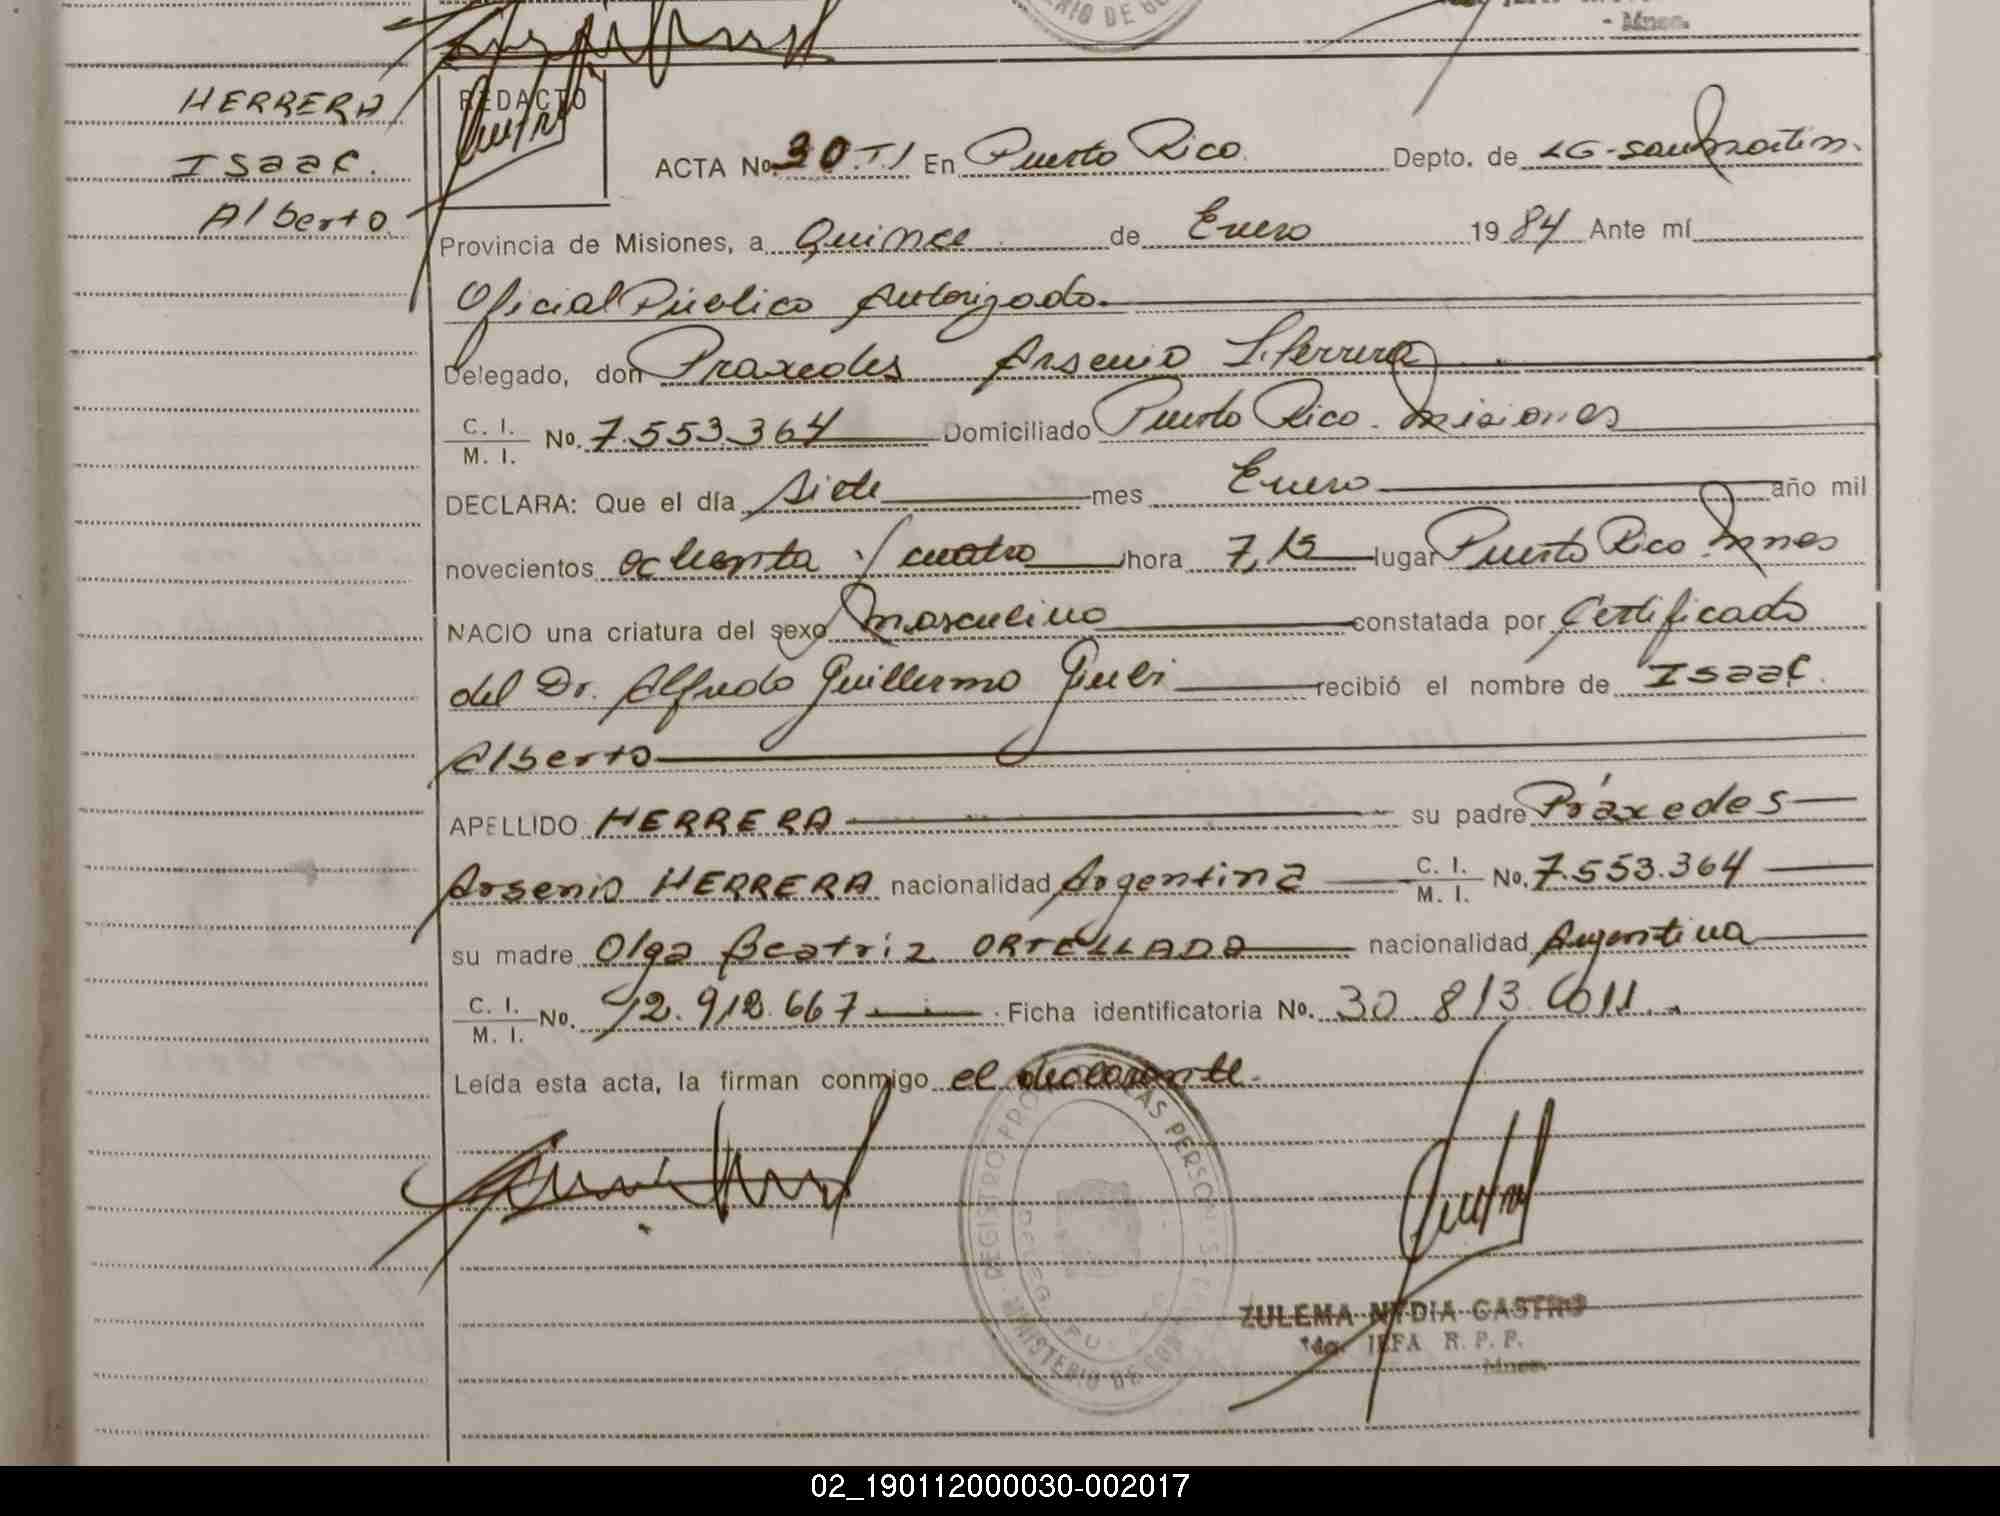 - Mnes.
HERRERA
Isaac.
Alberto.
REDACTO
ACTA No. 30 TI En Puerto Rico. Depto. de LG-San Martin.
Provincia de Misiones, a Quince de Enero 1984 Ante mí
Oficial Público Autorizado.
Delegado, don Praxedes Arsenio Herrera
C. I.
M. I. No. 7.553.364 Domiciliado Puerto Rico. Misiones
DECLARA: Que el día siete mes Enero año mil
novecientos ochenta y cuatro hora 7,15 lugar Puerto Rico Mnes
NACIO una criatura del sexo masculino constatada por Certificado
del Dr. Alfredo Guillermo recibió el nombre de Isaac.
Alberto
APELLIDO HERRERA su padre Práxedes
Arsenio HERRERA nacionalidad Argentina C. I.
M. I. No. 7.553.364
su madre Olga Beatriz ORTELLADO nacionalidad Argentina
C. I.
M. I. No. 12.912.667 Ficha identificatoria No. 30.813.011.
Leída esta acta, la firman conmigo el declarante.
REGISTRO PRO LAS PERSON
MINISTERIO DE GOB
ZULEMA NYDIA CASTRO
JEFA R. P. P.
Mnes.
02_190112000030-002017